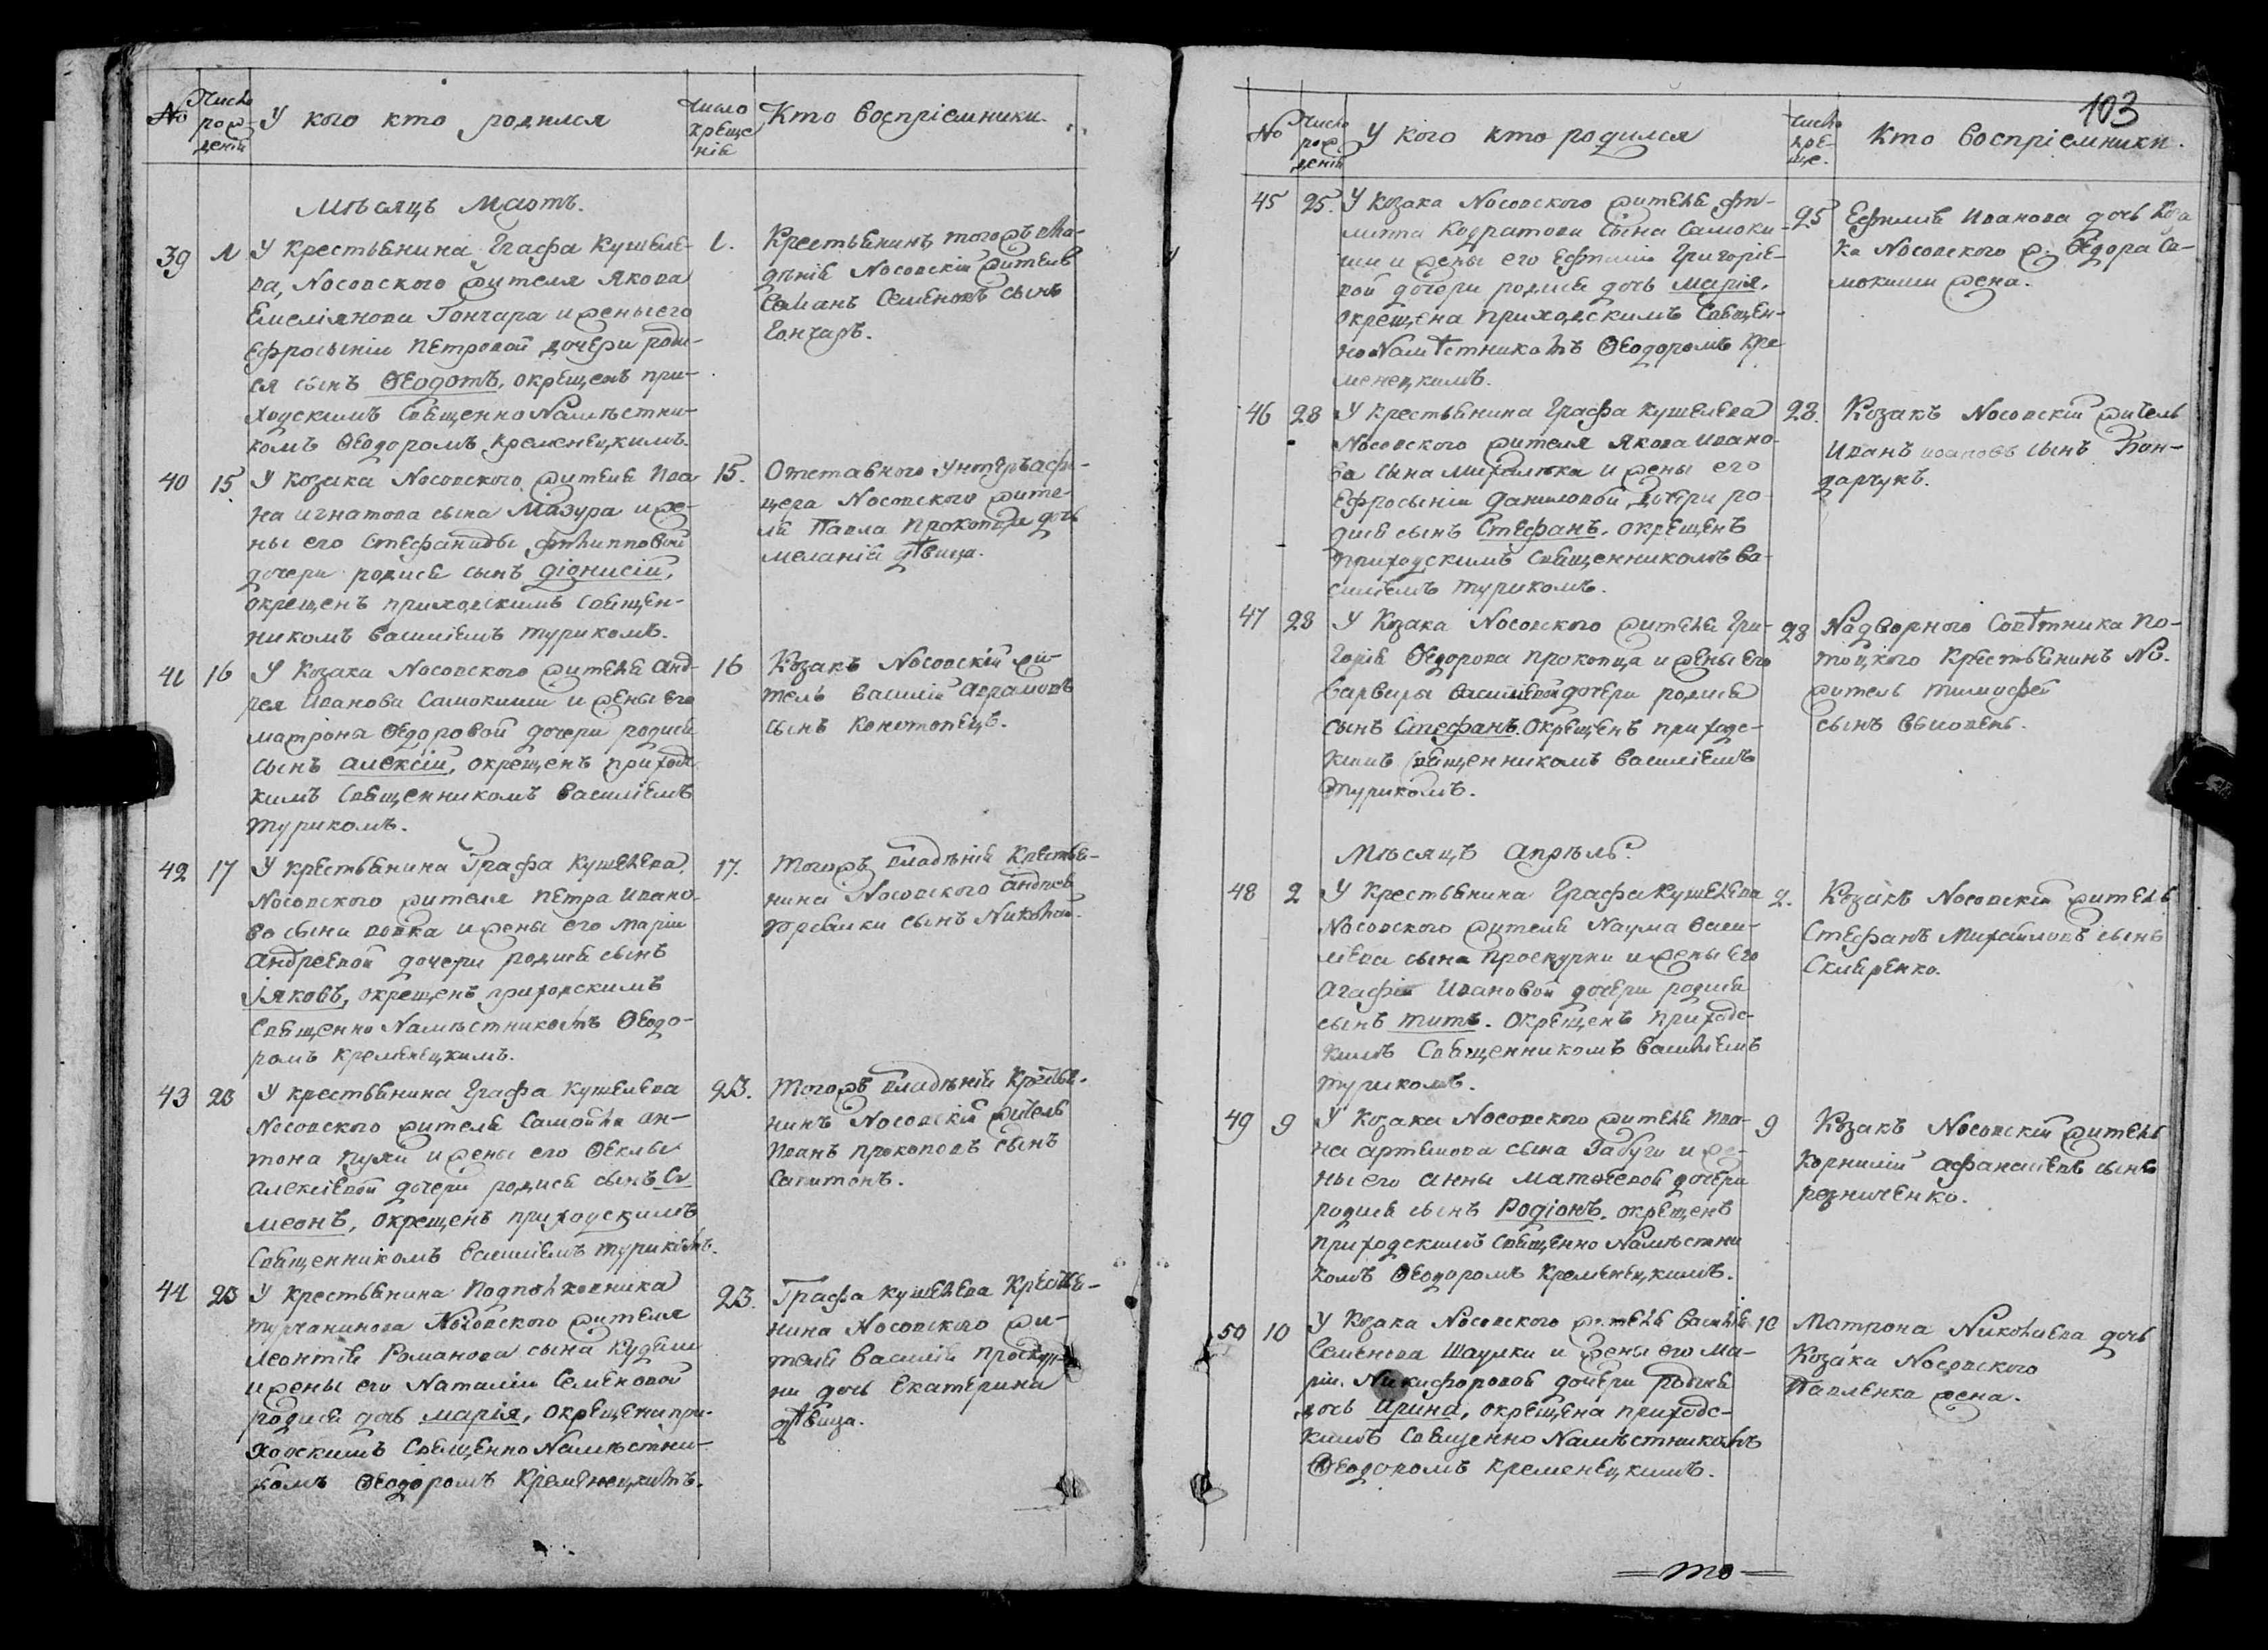 № Число рождений У кого кто родился Число крещеніе Кто воспріемники.
Мѣсяцъ Мартъ.
39 У крестьянина Графа Кушеле-
ва, Носовского жителя Якова
Емеліянова Гончара и жены его
Ефросыніи Петровой дочери роди-
ся сынъ Ѳеодотъ, окрещенъ при-
ходскимъ Священно Намѣстни-
комъ Ѳеодоромъ Кременецкимъ.
Крестьянинъ тогожъ вла-
дѣнія Носовскій житель
Семеновъ сынъ
Гончаръ.
40 15 У козака Носовского жителя Ива
на Игнатова сына Мазура и же-
ны его Стефаниды Филипповой
дочери родися сынъ Діонисій,
окрещенъ приходскимъ Священ-
никомъ Василіемъ Турикомъ.
15. Отставного Унтеръ афи-
цера Носовского жите-
ля Павла Прокопца дочь
Меланія дѣвица.
41 16 У Козака Носовского жителя Анд-
рея Иванова Самокиши и жены его
Матроны Ѳедоровой дочери родися
сынъ Алексій, окрещенъ приходс-
кимъ Священникомъ Василіемъ
Турикомъ.
16 Козакъ Носовскій жи-
тель Василій Аврамовъ
сынъ Конотопецъ.
42 17 У крестьянина Графа Кушелева,
Носовского жителя Петра Ивано-
ва сына Вовка и жены его Маріи
Андреевой дочери родися сынъ
Іяковъ, окрещенъ приходскимъ
Священно Намѣстникомъ Ѳеодо-
ромъ Кременецкимъ.
17. Тогожъ владѣнія Крестья-
нина Носовского Андрея
сынъ Николай.
43 23 У крестьянина Графа Кушелева
Носовского жителя Самойла Ан-
тона и жены его Ѳеклы
Алексіевой дочери родися сынъ Си
меонъ, окрещенъ приходскимъ
Священникомъ Василіемъ Турикомъ.
23. Тогожъ владѣнія Крестья-
нинъ Носовскій житель
Иванъ Прокоповъ сынъ
44 23 У крестьянина Подполковника
Турчанинова Носовского жителя
Леонтія Романова сына
и жены его Наталіи Семеновой
родися дочь Марія, окрещена при-
ходскимъ Священно Намѣстни-
комъ Ѳеодоромъ Кременецкимъ.
23. Графа Кушелева Крестья-
нина Носовского жи-
теля Василія Проскур-
ни дочь Екатерина
дѣвица.
103
№ Число рожденій У кого кто родился Число креще. Кто воспріемники.
45 25. У Козака Носовского жителя Фи-
липпа Кодратова сына Самоки-
ши и жены его Ефиміи Григоріе-
вой дочери родися дочь Марія,
окрещена приходскимъ Священ-
но Намѣстникомъ Ѳеодоромъ Кре
менецкимъ.
25 Ефимія Иванова дочь Коза
ка Носовского ж. Ѳедора Са-
мокиши жена.
46 28 У крестьянина Графа Кушелева
Носовского жителя Якова Ивано-
ва сына Михалюка и жены его
Ефросыніи Даниловой дочери ро-
дися сынъ Стефанъ, окрещенъ
приходскимъ Священникомъ Ва-
силіемъ Турикомъ.
28. Козакъ Носовскій житель
Иванъ Ивановъ сынъ Бон-
дарчукъ.
47 28 У Козака Носовского жителя Гри-
горія Ѳедорова Прокопца и жены его
Варвары Василіевой дочери родися
сынъ Стефанъ. Окрещенъ приходс-
кимъ Священникомъ Василіемъ
Турикомъ.
28 Надворного Совѣтника По-
тоцкого Крестьянинъ Но.
житель Тимофей
сынъ
Мѣсяцъ Апрѣль.
48 2 У Крестьянина Графа Кушелева
Носовского жителя Наума Васи-
лева сына Проскурни и жены его
Агафіи Ивановой дочери родися
сынъ Титъ. Окрещенъ приходс-
кимъ Священникомъ Василіемъ
Турикомъ.
2. Козакъ Носовскій житель
Стефанъ Михайловъ сынъ
Скляренко.
49 9 У Козака Носовского жителя Ива-
на Артемова сына Габуги и же-
ны его Анны Матѳеевой дочери
родися сынъ Родіонъ. окрещенъ
приходскимъ Священно Намѣстни
комъ Ѳеодоромъ Кременецкимъ.
9 Козакъ Носовскій житель
Корнилій Афанасіевъ сынъ
Резниченко.
50 10 У Козака Носовского жителя Василія
Семенова Шаулки и жены его Ма-
ріи Никифоровой дочери родися
дочь Ирина, окрещена приходс-
кимъ Священно Намѣстникомъ
Ѳеодоромъ Кременецкимъ.
10 Матрона Николаева дочь
Козака Носовского
Павленка жена.